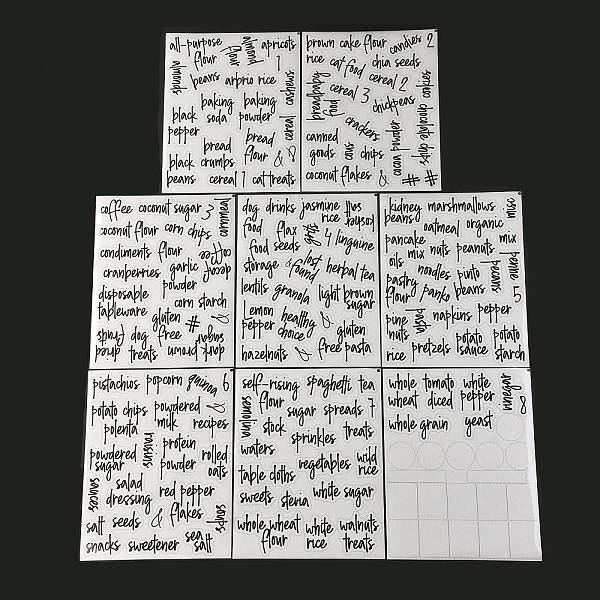 all-purpose flour almond flour apricots 1
almonds beans arbrio rice cashews
baking soda baking powder
black pepper bread flour cereal
bread crumbs & 
black beans cereal 1 cat treats
brown rice cake flour candies 2
cat food chia seeds
breadbaby food cereal 3 cereal 2 cookies
chickpeas
crackers chocolate chips
canned goods cous cous chips cocoa powder
coconut flakes & # #
coffee coconut sugar 3 cornmeal
coconut flour corn chips
condiments flour coffee
cranberries garlic powder decaf
disposable tableware corn starch
gluten # &
dried fruits dog treats free prawn dark sugar
dog food drinks jasmine rice kosher salt
flax
food seeds 4 linguine
storage lost & found herbal tea
lentils granola light brown sugar
lemon pepper healthy choice gluten
hazelnuts & free pasta
kidney beans marshmallows misc
oatmeal organic
pancake mix nuts peanuts mix
oils noodles pinto beans pecans penne
pastry flour panko 5
pine nuts pasta napkins pepper
rice pretzels potato sauce potato starch
pistachios popcorn quinoa 6
potato chips powdered milk &
polenta recipes
powdered sugar raisins protein powder rolled oats
sauces salad dressing red pepper
salt seeds & flakes soups
snacks sweetener sea salt
self-rising flour spaghetti tea
sugar spreads 7
stock sprinkles treats
waters
table cloths vegetables wild rice
sweets stevia white sugar
whole wheat flour white rice walnuts
treats
whole wheat tomato diced white pepper vinegar
8
whole grain yeast